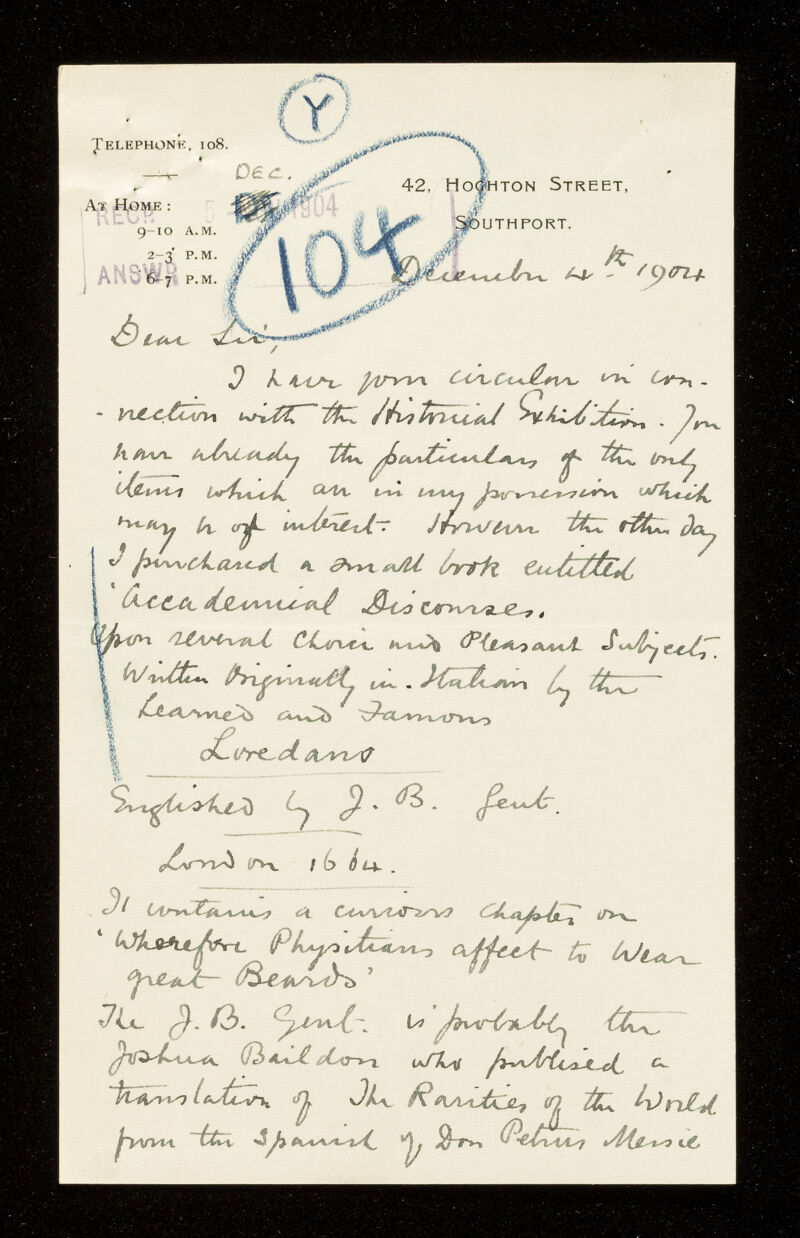 Y
TELEPHONE, 108.
DEC.
42, HOGHTON STREET,
AT HOME:
RECD. 5 1904
SOUTHPORT.
9-10 A.M.
2-3 P.M.
ANSWR
6-7 P.M.
104
December 4th 1904
Dear Sir,
I have your circular in con-
- nection with the Historical Exhibition. You
have already the particulars of the only
items which are in my possession which
may be of interest. However the other day
I purchased a small book entitled
'Accademical Discourses.
Upon several Choice and Pleasant Subjects.
Written Originally in Italian by the
Learned and Famous
Loredano
Englished by J. B. Gent.
London 1664.
It contains a curious chapter on
'Wherefore Physitians affect to Wear
great Beards'
The J. B. Gent. is probably the
Joshua Baildon who publised a
translation of The Rarities of the World
from the Spanish of Don Petrus Messie